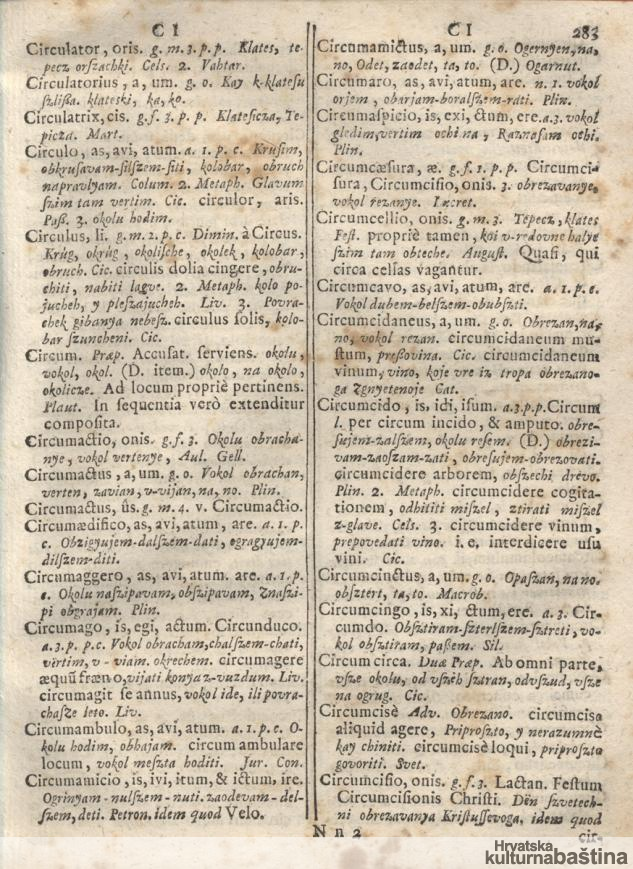 C I
Circulator, oris. g. m. 3. p. p. Klates, te-
pecz orszachki. Cels. 2. Vahtar.
Circulatorius, a, um. g. o. Kay k-klatesu
szlißa. klateski, ka, ko.
Circulatrix, cis. g. f. 3. p. p. Klatesicza, Te-
picza. Mart.
Circulo, as, avi, atum. a. 1. p. c. Krusim,
obkrusavam-silszem-siti, kolobar, obruch
napravlyam. Colum. 2. Metaph. Glavum
szim tam vertim. Cic. circulor, aris.
Paß. 3. okolu hodim.
Circulus, li. g. m. 2. p. c. Dimin. à Circus.
Krúg, okrúg, okolische, okolek, kolobar,
obruch. Cic. circulis dolia cingere, obru-
chiti, nabiti lagve. 2. Metaph. kolo po-
jucheh, y pleszajucheh. Liv. 3. Povra-
chek gibanya nebesz. circulus solis, kolo-
bar szuncheni. Cic.
Circum. Præp. Accusat. serviens. okolu,
vokol, okol. (D. item.) okolo, na okolo,
okolicze. Ad locum propriè pertinens.
Plaut. In sequentia verò extenditur
composita.
Circumactio, onis. g. f. 3. Okolu obracha-
nye, vokol vertenye, Aul. Gell.
Circumactus, a, um. g. o. Vokol obrachan,
verten, zavian, v-vijan, na, no. Plin.
Circumactus, ûs. g. m. 4. v. Circumactio.
Circumædifico, as, avi, atum, are. a. 1. p.
c. Obzigyujem-dalszem-dati, ogragyujem-
dilszem-diti.
Circumaggero, as, avi, atum. are. a. 1. p.
c. Okolu naszipavam, obszipavam, Znaszi-
pi obgrajam. Plin.
Circumago, is, egi, actum. Circunduco.
a. 3. p. p. c. Vokol obracham, chalszem-chati,
vertim, v-viam. okrechem. circumagere
æquũ fræno, vijati konya z-vuzdum. Liv.
circumagit se annus, vokol ide, ili povra-
chasze leto. Liv.
Circumambulo, as, avi, atum. a. 1. p. c. O-
kolu hodim, obhajam. circum ambulare
locum, vokol meszta hoditi. Jur. Con.
Circumamicio, is, ivi, itum, & ictum, ire.
Ogrinyam-nulszem-nuti. zaodevam-del-
szem, deti. Petron. idem quod Velo.
C I 283
Circumamictus, a, um. g. o. Ogernyen, na,
no, Odet, zaodet, ta, to. (D.) Ogarnut.
Circumaro, as, avi, atum, are. n. 1. vokol
orjem, obarjam-boralszem-rati. Plin.
Circumaspicio, is, exi, ctum, ere. a. 3. vokol
gledim, vertim ochi na, Raznasam ochi.
Plin.
Circumcæsura, æ. g. f. 1. p. p. Circumci-
sura, Circumcisio, onis. 3. obrezavanye,
vokol rezanye. Lucret.
Circumcellio, onis. g. m. 3. Tepecz, klates
Fest. propriè tamen, kói v-redovne halye
szim tam obteche. August. Quasi, qui
circa cellas vagantur.
Circumcavo, as, avi, atum, are. a. 1. p. c.
Vokol dubem-belszem-obubszti.
Circumcidaneus, a, um. g. o. Obrezan, na,
no, vokol rezan. circumcidaneum mu-
stum, preßovina. Cic. circumcidaneum
vinum, vino, koje vre iz tropa obrezano-
ga Zgnyetenoje Cat.
Circumcido, is, idi, isum. a. 3. p. p. Circum
l. per circum incido, & amputo. obre-
sujem-zalszem, okolu resem. (D.) obrezi-
vam-zaoszam-zati, obresujem-obrezovati.
circumcidere arborem, obszechi drèvo.
Plin. 2. Metaph. circumcidere cogita-
tionem, odhititi miszel, ztirati miszel
z-glave. Cels. 3. circumcidere vinum,
prepovedati vino. i. e. interdicere usu
vini. Cic.
Circumcinctus, a, um. g. o. Opaszan, na no.
obsztert, ta, to. Macrob.
Circumcingo, is, xi, ctum, ere. a. 3. Cir-
cumdo. Obsztiram-szterlszem-sztreti, vo-
kol obsztiram, paßem. Sil.
Circum circa. Duæ Præp. Ab omni parte,
vsze okolu, od vszeh sztran, odvszud, vsze
na ogrug. Cic.
Circumcisè Adv. Obrezano. circumcise
aliquid agere, Priproszto, y nerazumnè
kay chiniti. circumcisè loqui, priproszto
govoriti. Svet.
Circumcisio, onis. g. f. 3. Lactan. Festum
Circumcisionis Christi. Dèn szvetech-
ni obrezavanya Kristussevoga. idem quod
N n 2
cir-
Hrvatska
kulturnabaština